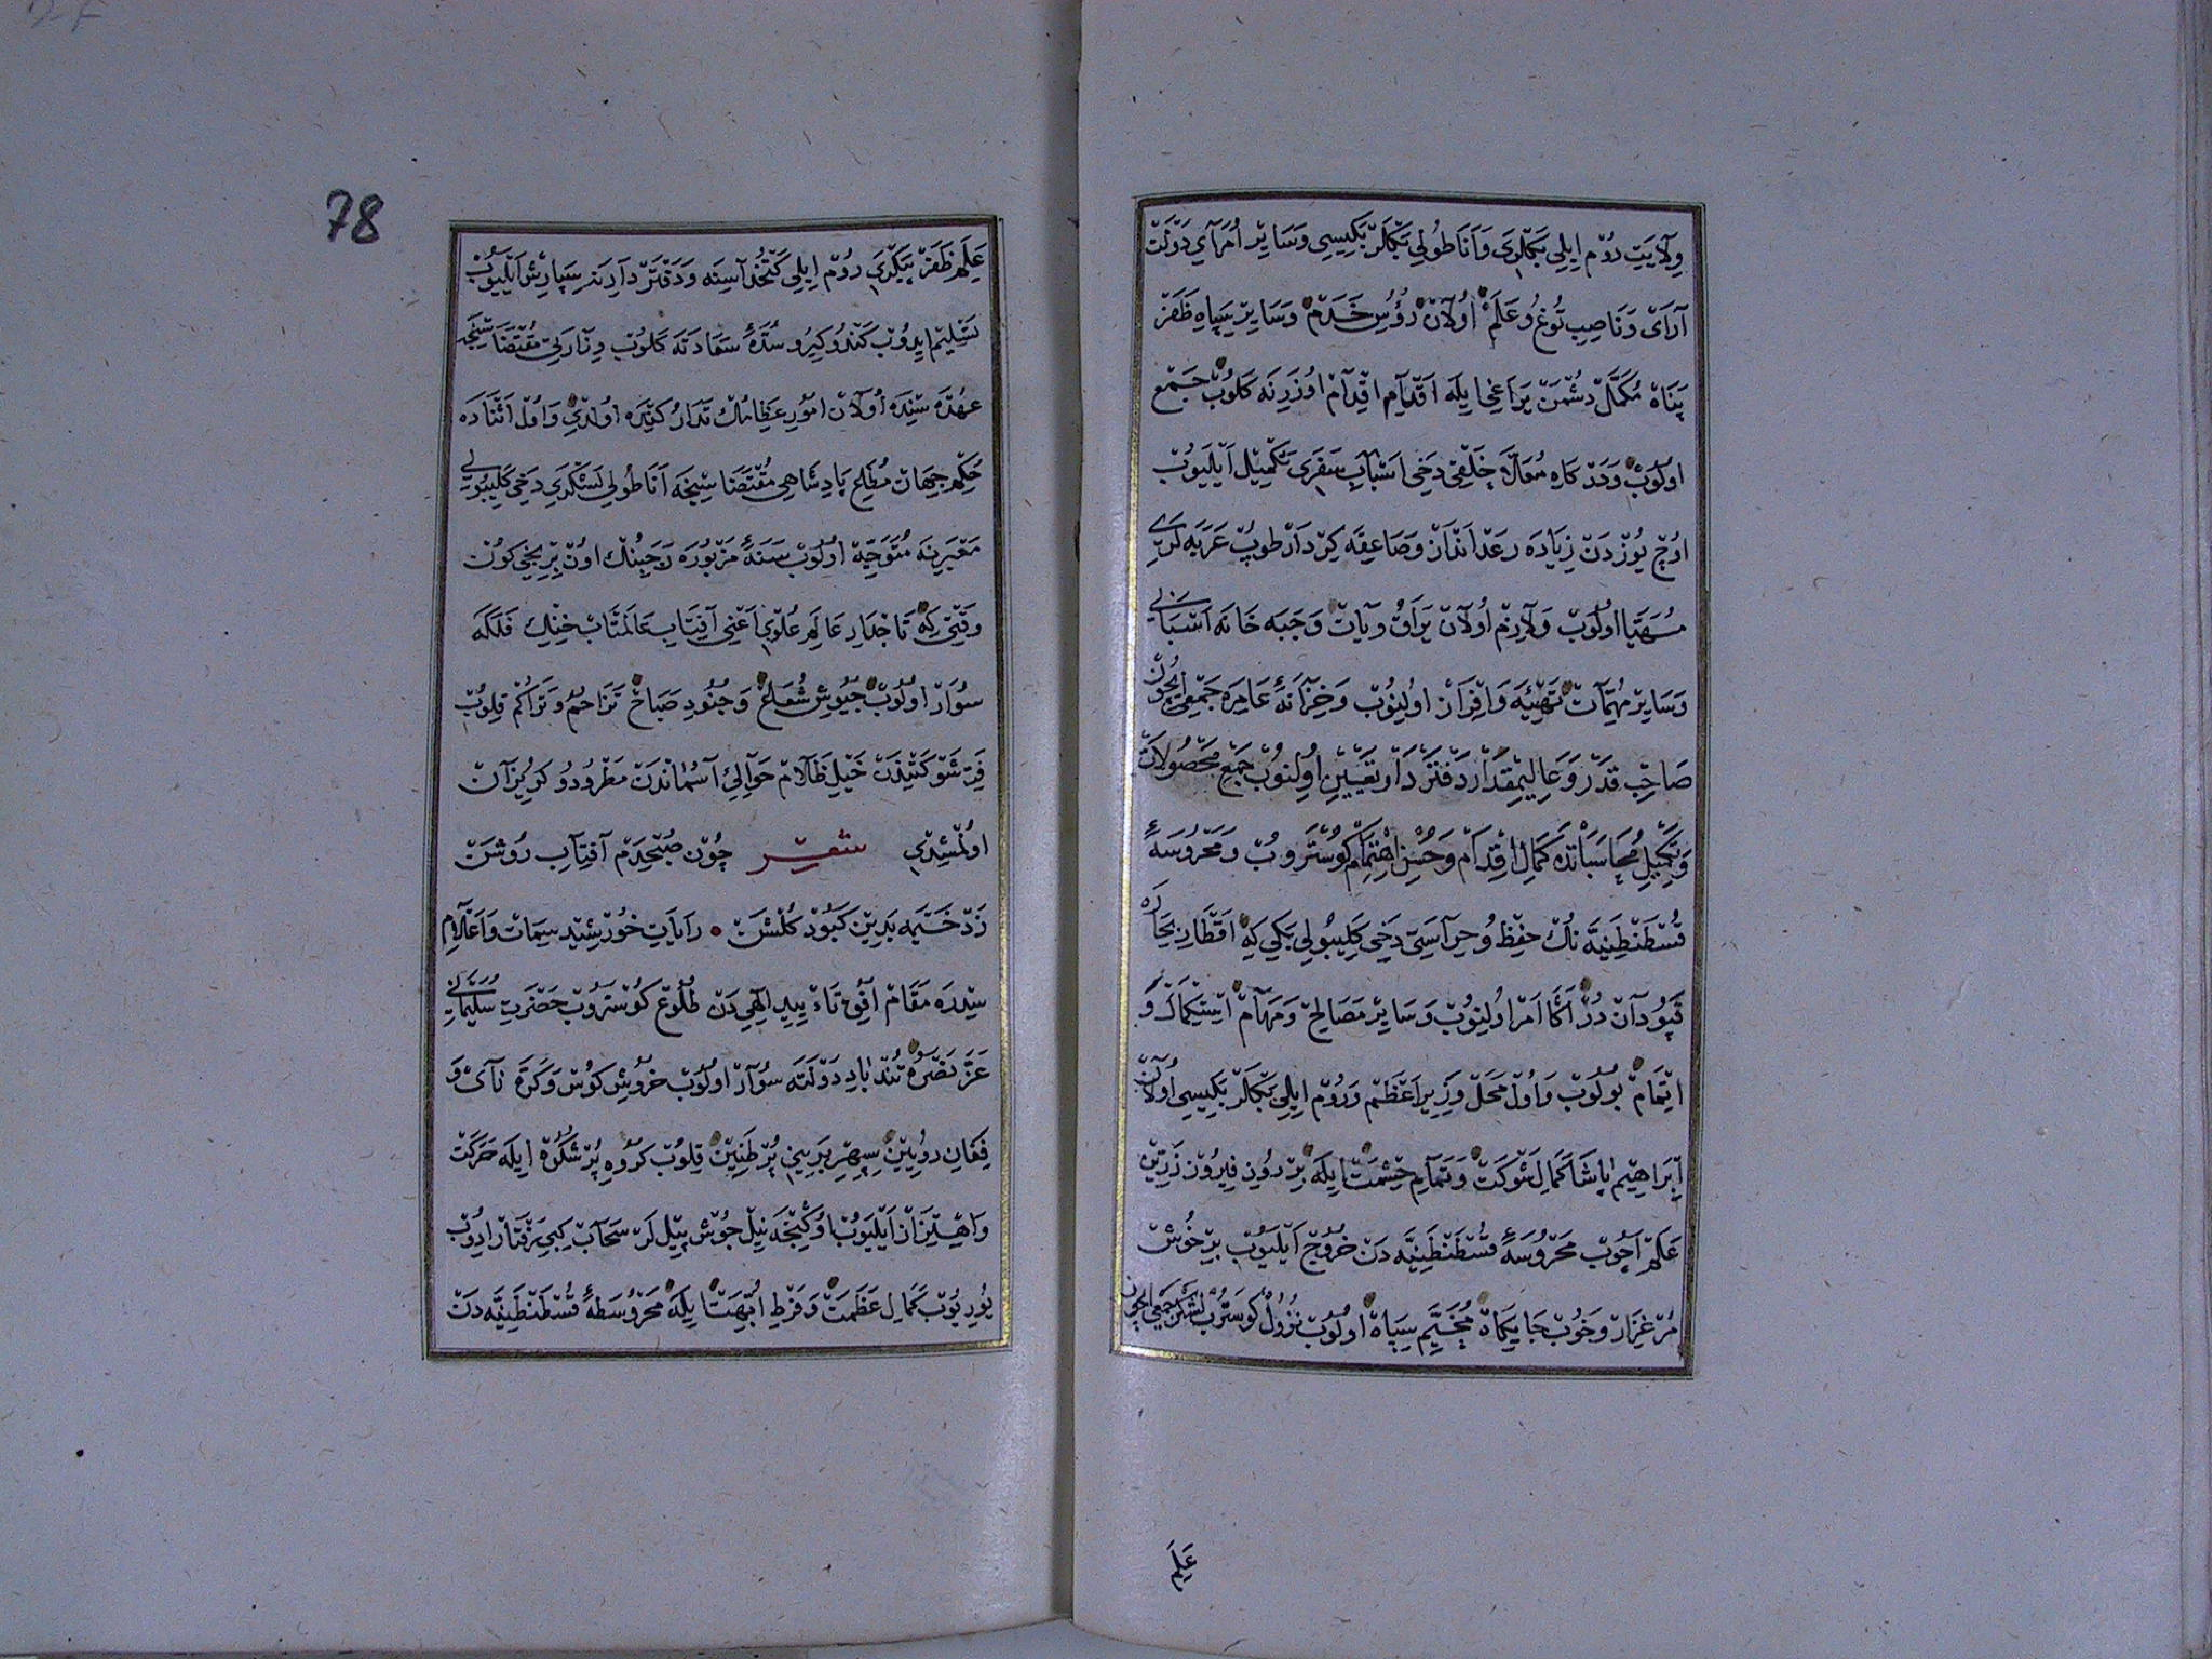 ولایت روم ایلی بکلری و اناطولی بکلربکیسی و سایر امرآی دولت
آرای و ناصب توغ و علم اولان رؤس خدم و سایر سپاه ظفر
پناه مکمل دشمن یراغی ایله اقدام اقدام اوزرنه کلوب جمع
اولوب و درکاه معلا خلقی دخی اسباب سفری تکمیل ایلیوب
اوچ یوزدن زیاده رعد انداز و صاعقه کردار طوپ عربه لری
مهیا اولوب و لازم اولان یراق و یات و جبه خانه اسبابی
و سایر مهمات تهیئه و افراز اولنوب و خزانهٔ عامره جمعیچون
صاحب قدر و عالیمقدار دفتردار تعیین اولنوب جمع محصولات
و تکمیل محاسباتده کمال اقدام و حسن اهتمام کوستروب و محروسهٔ
قسطنطنیه نك حفظ و حراستی دخی کلیبولی بکی که اقطار بحاره
قپودان در اکا امر اولنوب و سایر مصالح و مهام استکمال و
اتمام بولوب و اول محل وزیر اعظم و روم ایلی بکلربکیسی اولان
ابراهیم پاشا کمال شوکت و تمام حشمت ایله بر روز فیروز زرین
علم اچوب محروسهٔ قسطنطنیه دن خروج ایلیوب بر خوش
مرغزار و خوب جایکاه مخیم سپاه اولوب نزول کوستروب لشکر جمعیچون
علم
78
علم ظفر پیکری روم ایلی کتخداسنه و دفتردارینه سپارش ایلیوب
تسلیم ایدوب کندو کیرو سدهٔ سعادته کلوب وزارتی مقتضاسنجه
عهده سنده اولان امور عظامك تدارکنده اولدی و اول اثناده
حکم جهان مطیع پادشاهی مقتضاسنجه اناطولی لشکری دخی کلیبولی
معبرینه متوجه اولوب سنهٔ مزبوره رجبنك اون برنجی کون
وقتی که تاجدار عالم علوی اعنی آفتاب عالمتاب خنك فلکه
سوار اولوب جیوش شعاع و جنود صباح تزاحم و تراکم قلوب
فر شوکتیدن خیل ظلام حوالئ آسماندن مطرود و کریزان
اولمشدی شعر چون صبحدم آفتاب روشن
زد خیمه بدین کبود کلشن • رایات خورشید سمات و اعلام
سدره مقام افق تأیید الهی دن طلوع کوستروب حضرت سلیمانی
عز نصره تند باد دولته سوار اولوب خروش کوس و کره نای و
فغان رویین سپهر برینی پر طنین قلوب کروه پر شکوه ایله حرکت
و اهتزاز ایلیوب اوکنجه نیل جوش پیل لر سحاب کبی رفتار ایدوب
یوریوب کمال عظمت و فرط ابهت ایله محروسهٔ قسطنطنیه دن